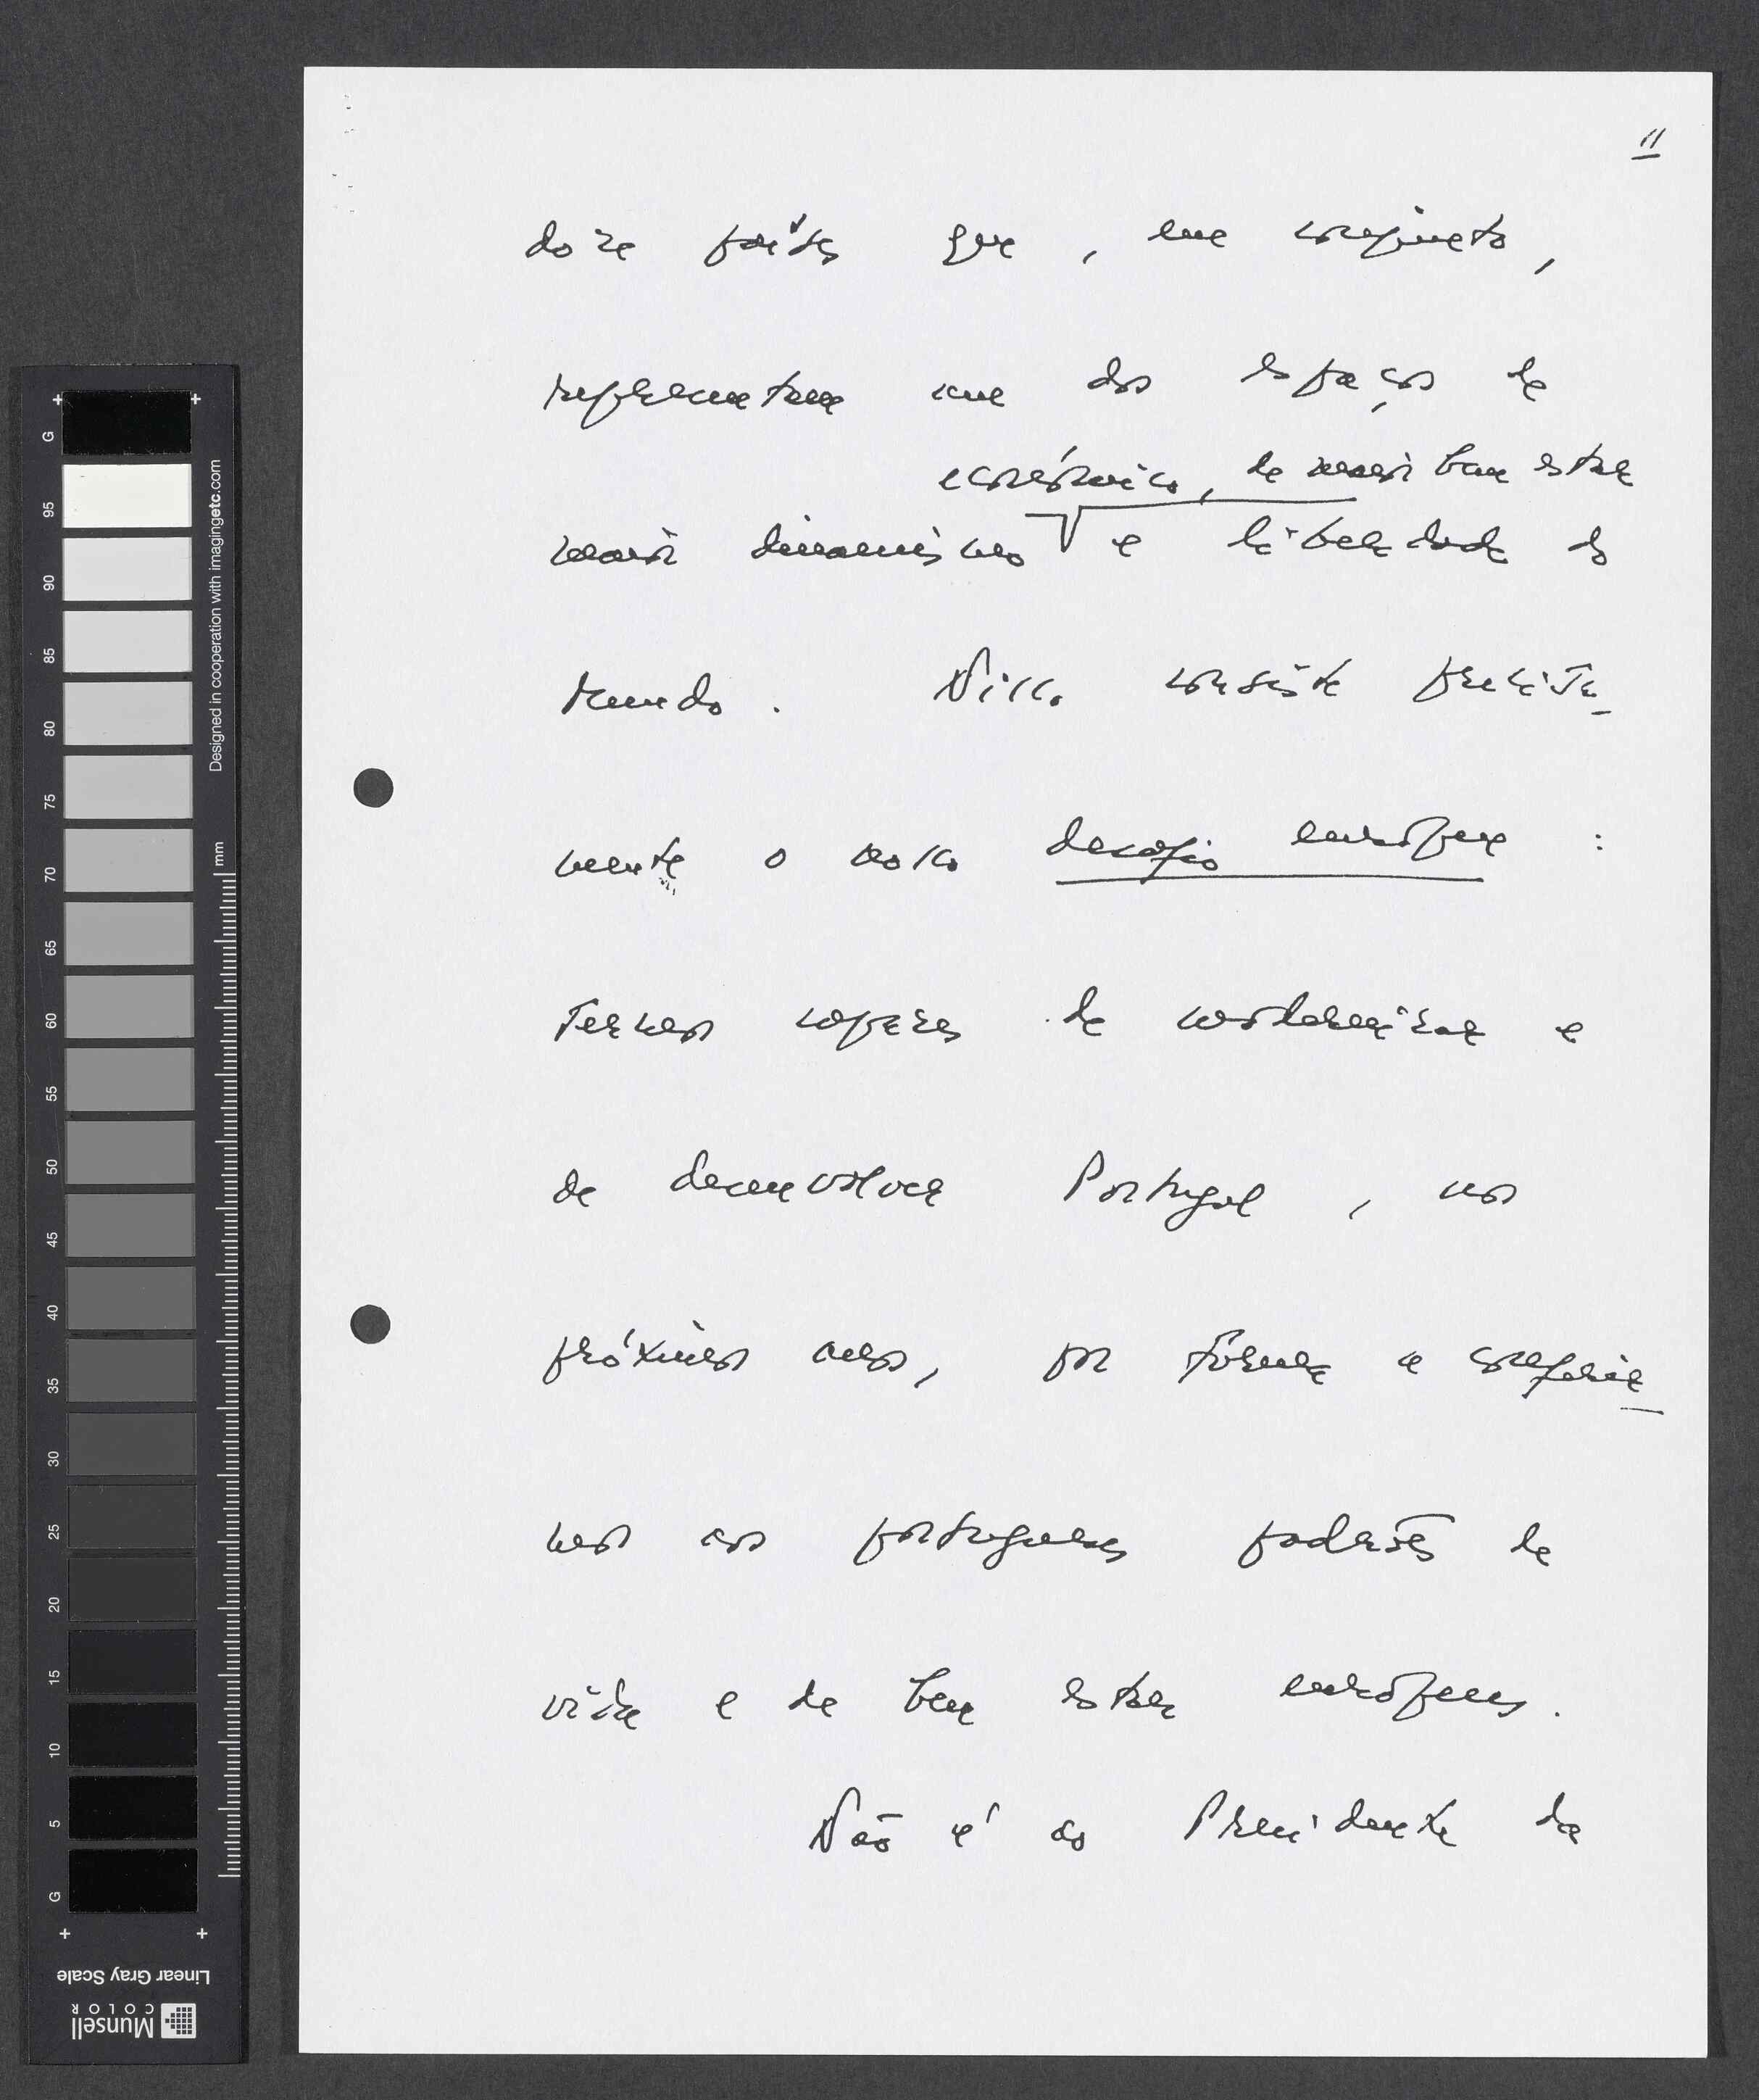 11
doze países que, em conjunto,
representam um dos espaços de
económico, de maior bem estar
maior dinamismo e liberdade do
Mundo. Nisso consiste precisa-
mente o nosso desafio europeu :
sermos capazes de modernizar e
de desenvolver Portugal, nos
próximos anos, por forma a conferir-
mos aos portugueses padrões de
vida e de bem estar europeus.
Não é ao Presidente da
G 95 90 85 80 75 70 65 60 55 50 45 40 35 30 25 20 15 10 5 G
Designed in cooperation with imagingetc.com
mm
Linear Gray Scale
Munsell
COLOR